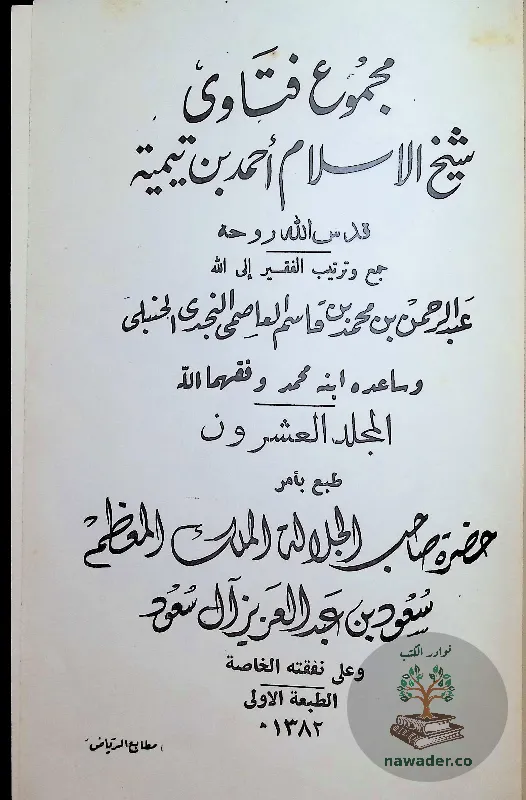 مجموع فتاوى
شيخ الاسلام أحمد بن تيمية
قدس الله روحه
جمع وترتيب الفقير إلى الله
عبد الرحمن بن محمد بن قاسم العاصمى النجدى الحنبلى
وساعده ابنه محمد وفقهما الله
المجلد العشرون
طبع بأمر
حضرة صاحب الجلالة الملك المعظم
سعود بن عبد العزيز آل سعود
وعلى نفقته الخاصة
الطبعة الاولى
١٣٨٢ ه
، مطابع الرياض ،
نوادر الكتب
nawader.co